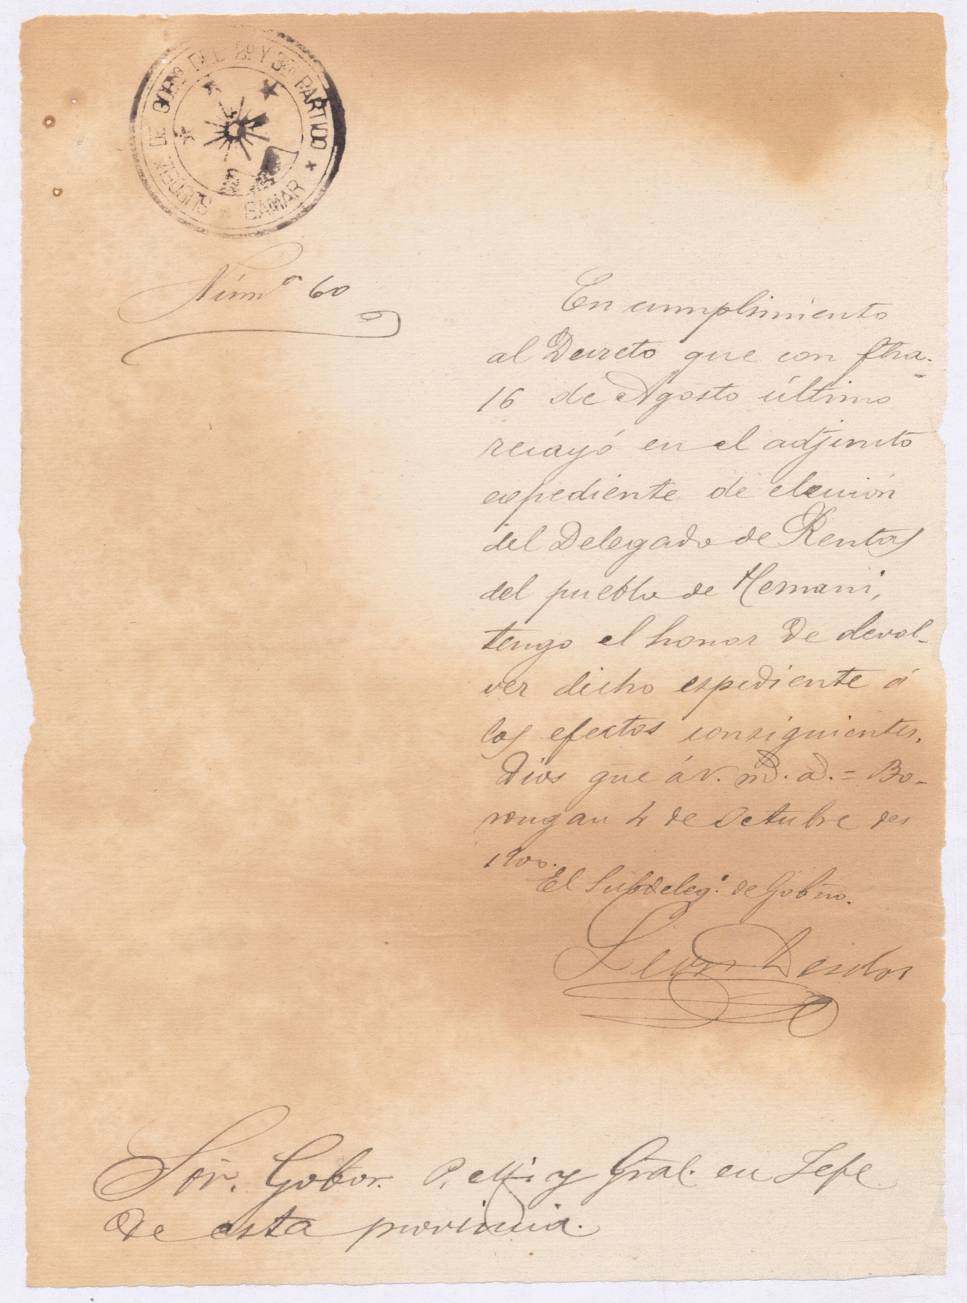 SUBDEL.ⁿ DE GOBº DEL 2º Y 3er PARTIDO
SAMAR
Númº 60
En cumplimiento
al Decreto que con fha.
16 de Agosto último
recayó en el adjunto
espediente de elección
del Delegado de Rentas
del pueblo de Hernani,
tengo el honor de devol-
ver dicho espediente á
los efectos consiguientes.
Dios gue á V. m. a. = Bo-
rongan 4 de Octubre de
1900.
El Subdelegº de Gobno.
Sor. Gobor. P. M. y Gral. en Jefe
de esta provincia.